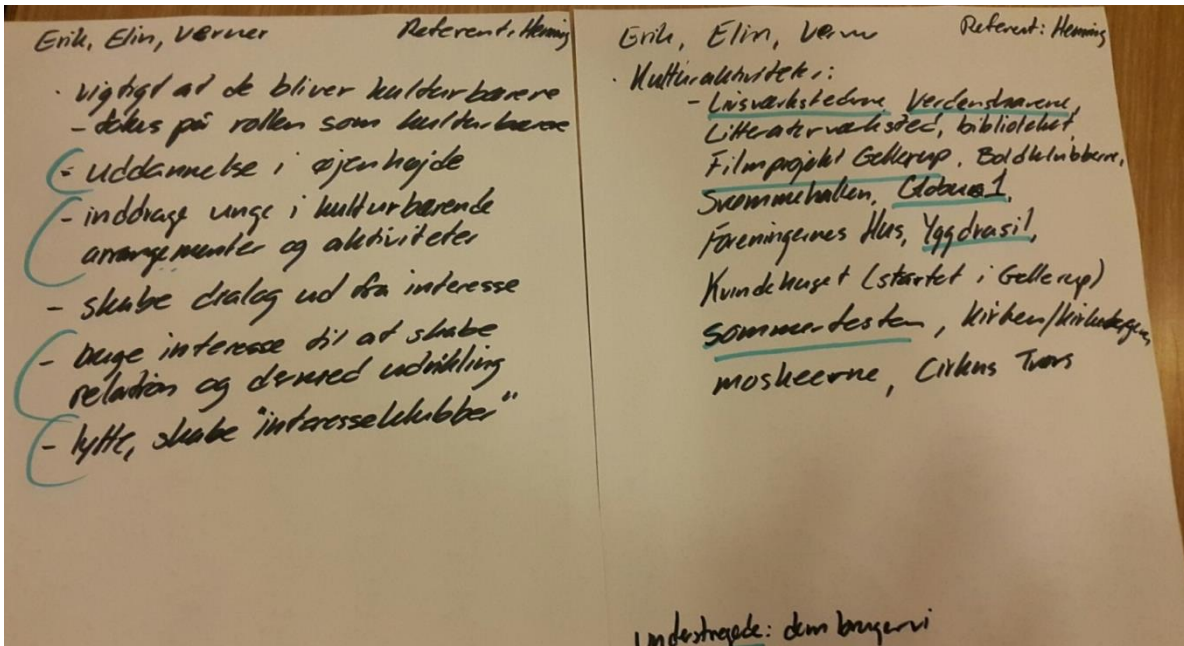 Erik, Elin, Verner
Referent: Henning
· vigtigt at de bliver kulturbærere
- fokus på rollen som kulturbærere
- uddannelse i øjenhøjde
- inddrage unge i kulturbærende
arrangementer og aktiviteter
- skabe dialog ud fra interesse
- bruge interesse til at skabe
relation og dermed udvikling
- lytte, skabe "interesseklubber"
Erik, Elin, Verner
Referent: Henning
· Kulturaktiviteter:
- Livsværkstederne Verdenshavene,
Litteraturværksted, biblioteket,
Filmprojekt Gellerup, Boldklubberne,
Svømmehallen, Globus1,
Foreningernes Hus, Yggdrasil,
Kvindehuset (startet i Gellerup)
Sommerfesten, kirken/
moskeerne, Cirkus Tværs
Understregede: dem bruger vi